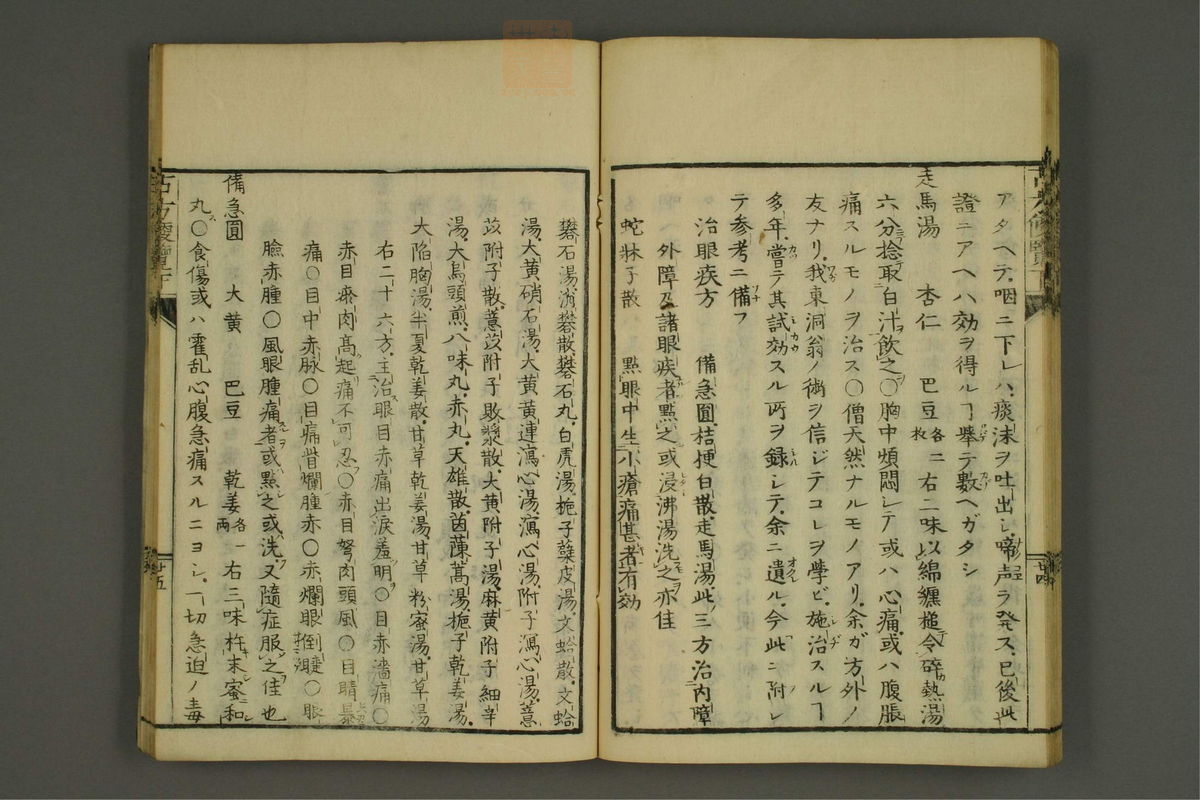 アタヘテ咽ニ下レハ痰沫ヲ吐出シ啼声ヲ発ス已後此
證ニアヘハ効ヲ得ルヿ挙テ數ヘガタシ
走馬湯 杏仁 巴豆各二枚 右二味以綿纒槌令碎熱湯
六分捻取白汁飲之〇胸中煩悶シテ或ハ心痛或ハ腹脹
痛スルモノヲ治ス〇僧天然ナルモノアリ余ガ方外ノ
友ナリ我東洞翁ノ術ヲ信ジテコレヲ學ビ施治スルヿ
多年嘗テ其試効スル所ヲ録シテ余ニ遺ル今此ニ附シ
テ参考ニ備フ
治眼疾方 備急圓桔梗白散走馬湯此三方治内障
外障及諸眼疾者點之或浸沸湯洗之亦佳
蛇牀子散 點眼中生小瘡痛甚者有効
礬石湯消礬散礬石丸白虎湯梔子蘗皮湯文蛤散文蛤
湯大黄硝石湯大黄黄連瀉心湯瀉心湯附子瀉心湯薏
苡附子散薏苡附子敗漿散大黄附子湯麻黄附子細辛
湯大烏頭煎八味丸赤丸天雄散茵蔯蒿湯梔子乾姜湯
大陷胸湯半夏乾姜散甘草乾姜湯甘草粉蜜湯甘草湯
右二十六方主治眼目赤痛出淚羞明〇目赤濇痛〇
赤目瘀肉高起痛不可忍〇赤目弩肉頭風〇目睛暴
痛〇目中赤脉〇目痛眥爛腫赤〇赤爛眼倒睫〇眼
瞼赤腫〇風眼腫痛者或點之或洗又隨症服之佳也
備急圓 大黄 巴豆 乾姜各一兩 右三味杵末蜜和
丸〇食傷或ハ霍乱心腹急痛スルニヨシ一切急迫ノ毒
廿四
廿五